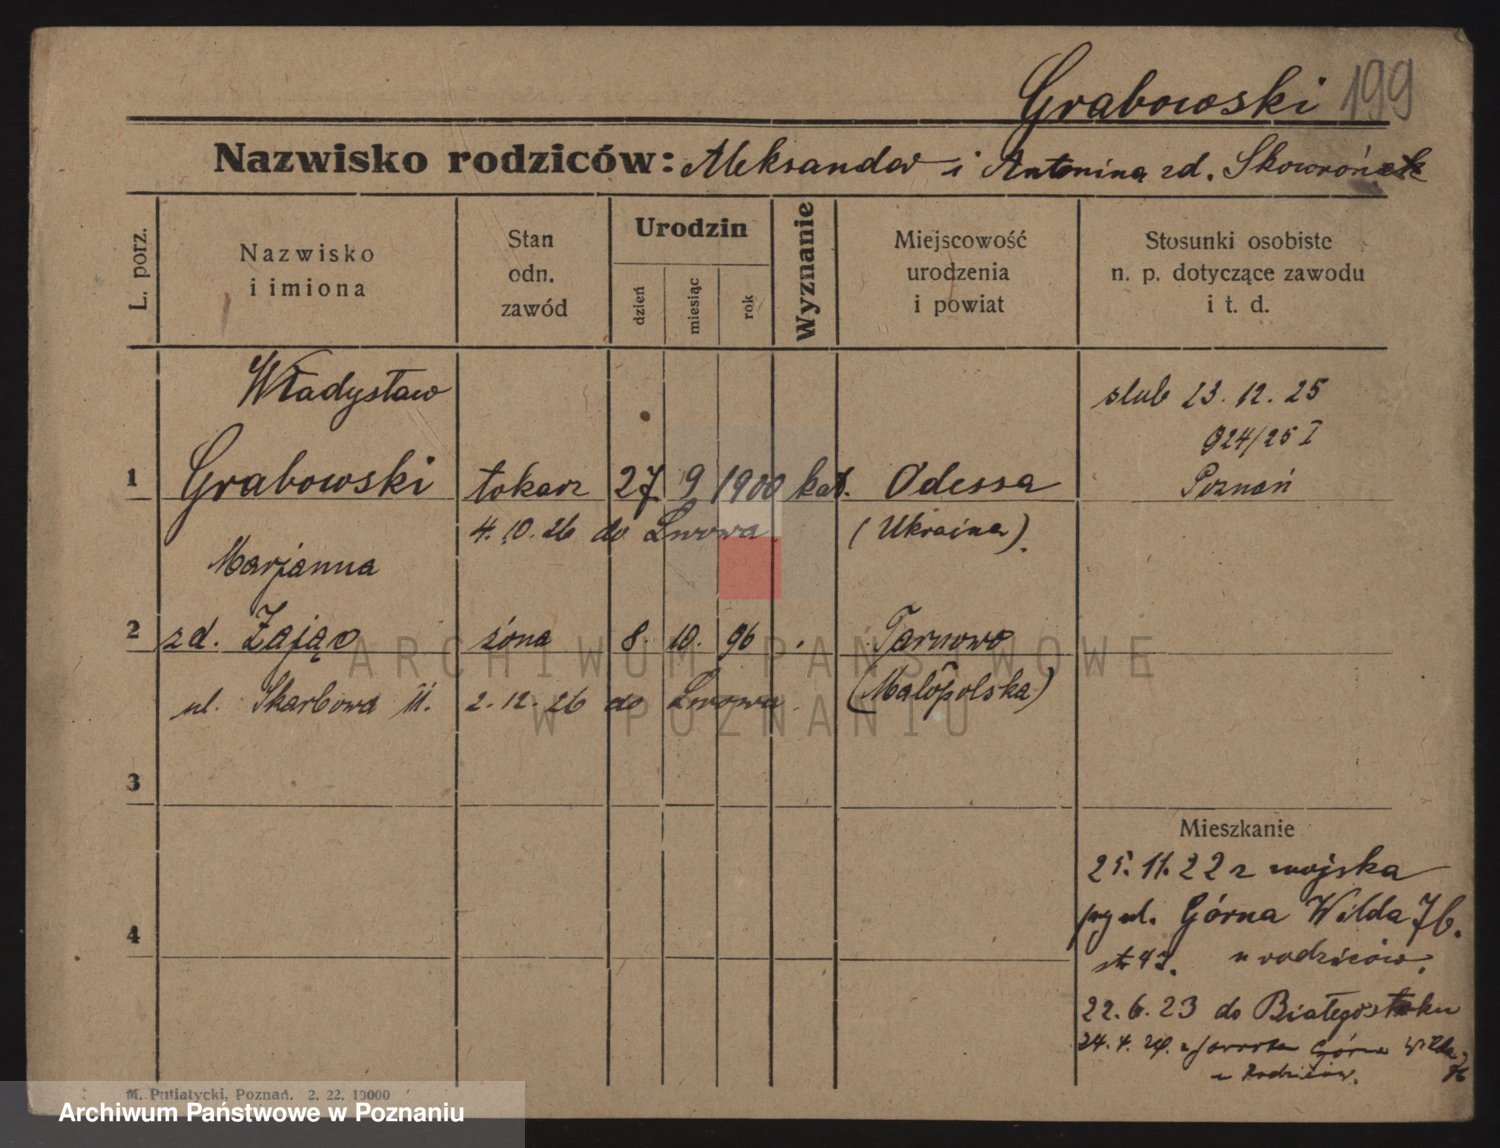 Grabowski 199
Nazwisko rodziców: Aleksander i Antonina zd. Skowronek
L. porz.
Nazwisko i imiona
Stan odn. zawód
Urodzin
dzień miesiąc rok
Wyznanie
Miejscowość urodzenia i powiat
Stosunki osobiste n. p. dotyczące zawodu i t. d.
Władysław
1 Grabowski tokarz 27 9 1900 kat. Odessa
4. 10. 26 do Lwowa (Ukraina).
slub 23. 12. 25
924/25 I
Poznań
Marjanna
2 zd. Zając żona 8. 10. 96 Tarnowo
ul. Skarbowa 11. 2. 12. 26 do Lwowa (Małopolska)
3
4
Mieszkanie
25. 11. 22 z wojska
ul. Górna Wilda 76.
u rodziców.
22. 6. 23 do Białegostoku
24. 4. Górna Wilda 76
u Rodziców.
M. Putiatycki, Poznań. 2. 22. 10000
ARCHIWUM PAŃSTWOWE
W POZNANIU
Archiwum Państwowe w Poznaniu